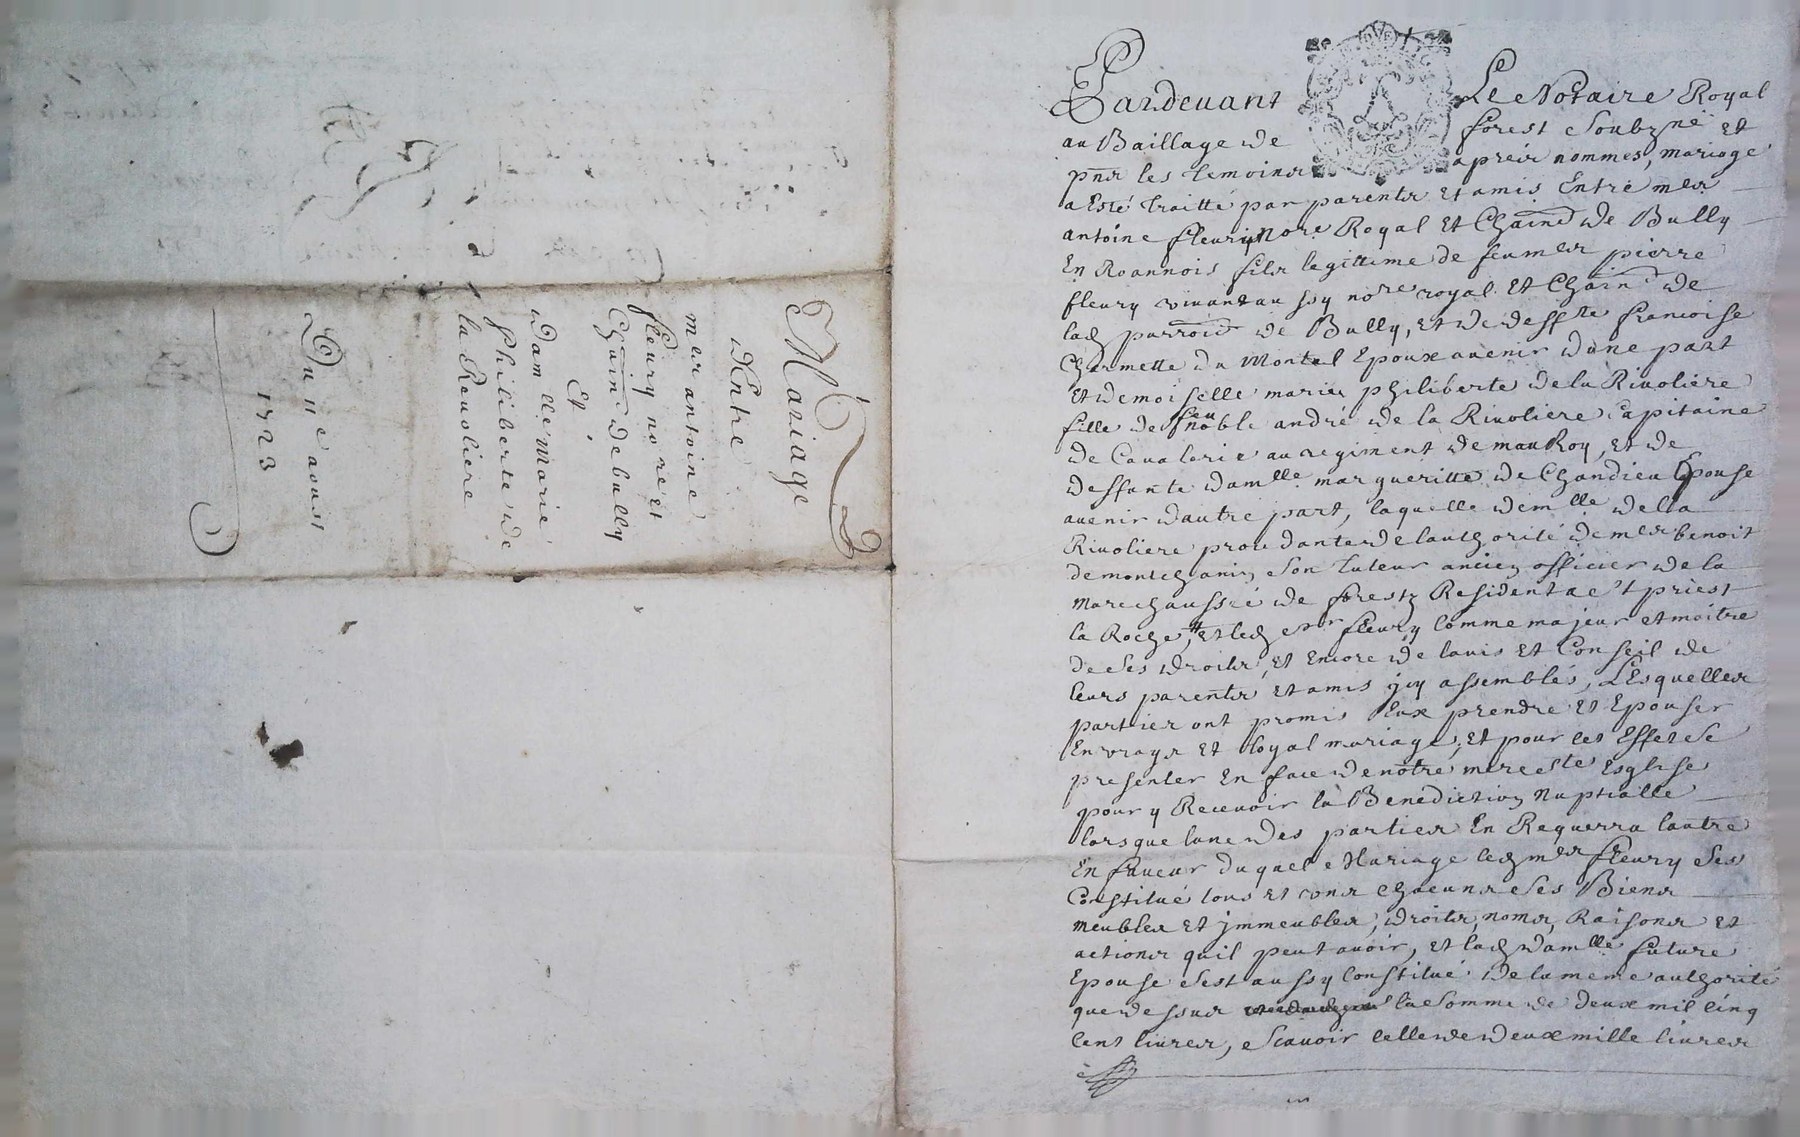 Mariage
Entre
mer antoine
fleury nore et
Chãin de bully
Et
Damlle Marie
Philiberte de
la Revoliere
Du 11e aoust
1723
Pardevant Le Notaire Royal
au Baillage de forest Soubzne et
pnts les temoins apreis nommes, mariage
a Esté traitté par parents et amis Entre mer
antoine fleury nore Royal et Chãin de Bully
En Roannois fils legittime de feu mer pierre
fleury vivant aussy nore royal et Chãin de
lad parroise de Bully, et de deffte francoise
Chermette du Montel Epoux avenir dune part
et demoiselle marie philiberte de la Rivoliere
fille de feu noble andré de la Rivoliere Capitaine
de Cavalerie au regiment de mauRoy, et de
deffunte damlle margueritte de Chandieu Epouse
avenir dautre part, laquelle demlle de la
Rivoliere procedante de lauthorité de mer benoit
de montchanin son tuteur ancien officier de la
Marechaussée de forestz Resident a st priest
la Roche, et led sr fleury comme majeur et maitre
de ses droits, et encore de lavis et Conseil de
leurs parents et amis jcy assemblés, LEsquelles
parties ont promis Eux prendre et Epouser
En vrays et loyal mariage, et pour cet Effet se
presenter En face de notre mere ste Esglise
pour y Recevoir la Benediction Nuptialle
lorsque lune des parties En Requerra lautre
En faveur duquel Mariage led mer fleury ses
Constitué tous et vns chacuns ses Biens
meubles et jmmeubles, droits, noms, Raisons et
actions quil peut avoir, et lad damlle future
Epouse sest aussy Constitué de la meme authorité
que dessus la somme de deux mil cinq
cent livres, scavoir celle de deux mille livres